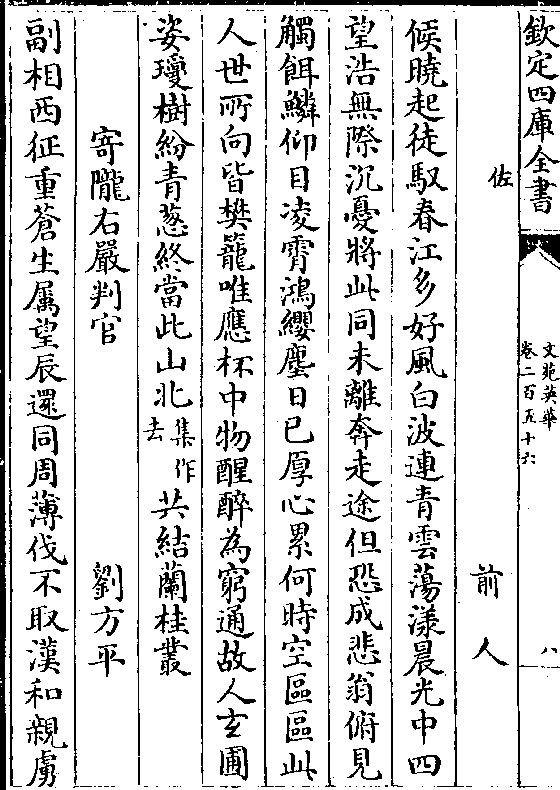 欽定四庫全書
文苑英華
卷二百五十六
八
佐
前人
候曉起徒馭春江多好風白波連青雲蕩漾晨光中四
望浩無際沉憂將此同未離奔走途但恐成悲翁俯見
觸餌鱗仰目凌霄鴻纓塵日已厚心累何時空區區此
人世所向皆樊籠唯應杯中物醒醉為窮通故人玄圃
姿瓊樹紛青葱終當此山北集作去共結蘭桂叢
寄隴右嚴判官
劉方平
副相西征重蒼生属望辰還同周薄伐不取漢和親虜